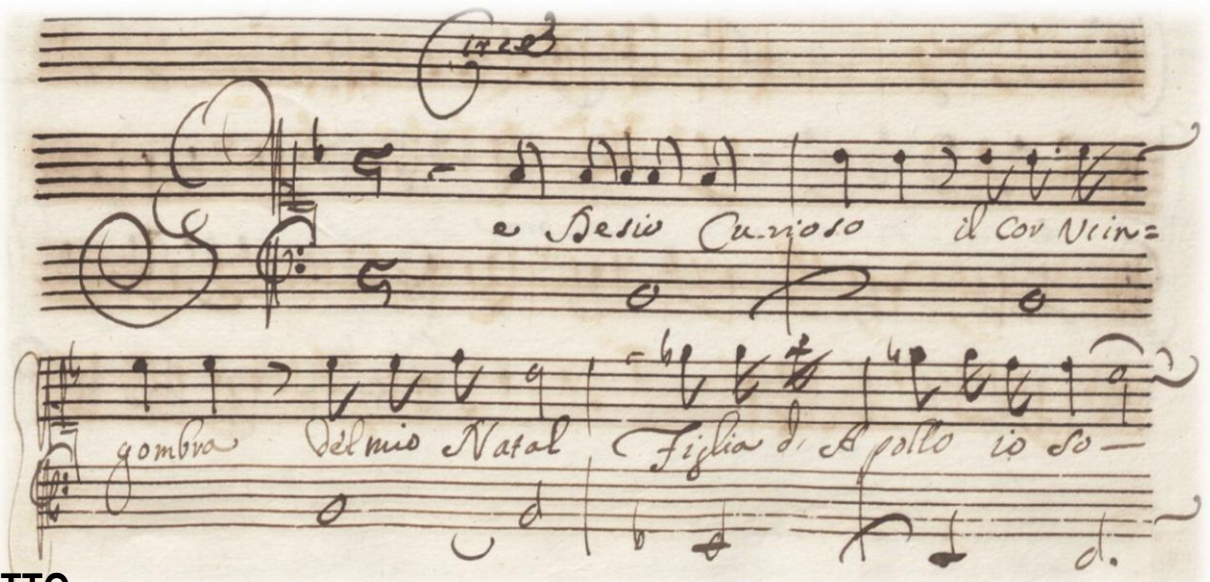 Circe
Se Desio Curioso il Cor
gombra del mio Natal Figlia di Apollo io so—
TTO